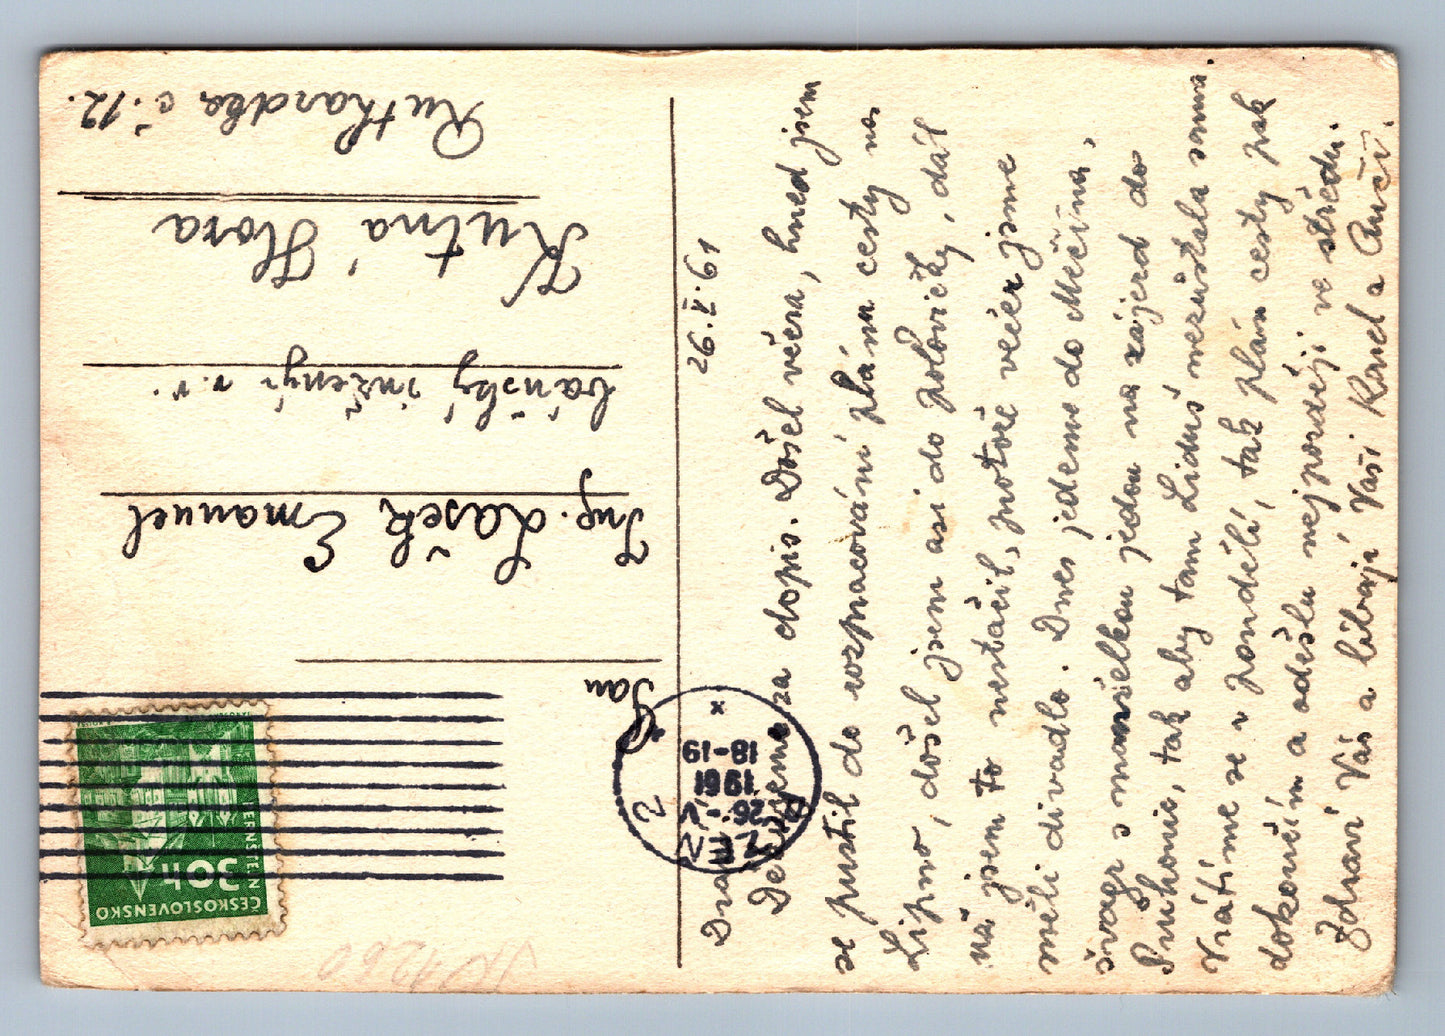 26.V.61
Děkujeme za dopis. Došel včera, hned jsem
se pustil do rozpracování plánu cesty na
Lipno, došel jsem asi do polovičky, dál
na jsem to nestačil, protože večer jsme
měli divadlo. Dnes jedeme do Měčína,
švagr s manželkou jedou na zájezd do
Průhonic, tak aby tam Liduš nezůstala sama.
Vrátíme se v pondělí, tak plán cesty pak
dokončím a odešlu nejpozději ve středu.
Zdraví Vás a líbají Vaši Karel a Anči.
PLZEŇ 2
26.-V.
1961
18-19
x
ČESKOSLOVENSKO
30h
PERNŠTEJN
Pan
Ing. Lašek Emanuel
báňský inženýr v.v.
Kutná Hora
Ruthardka č.12.